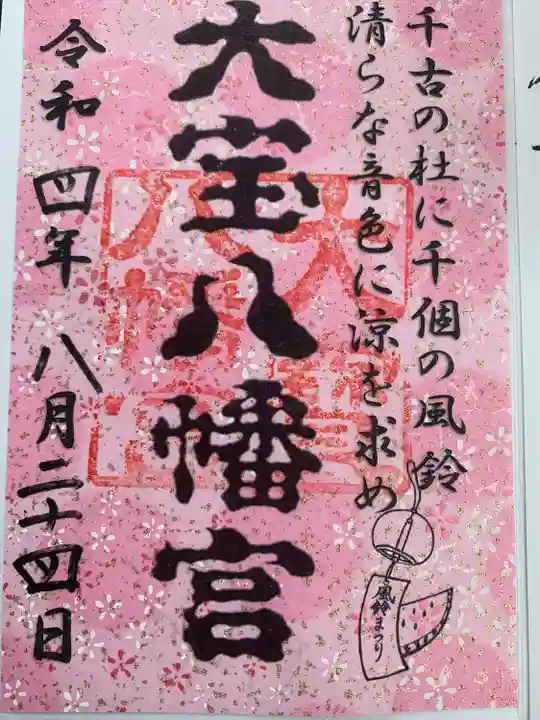 千古の杜に千個の風鈴
清らな音色に涼を求め
風鈴まつり
大宝八幡宮
令和四年八月二十四日